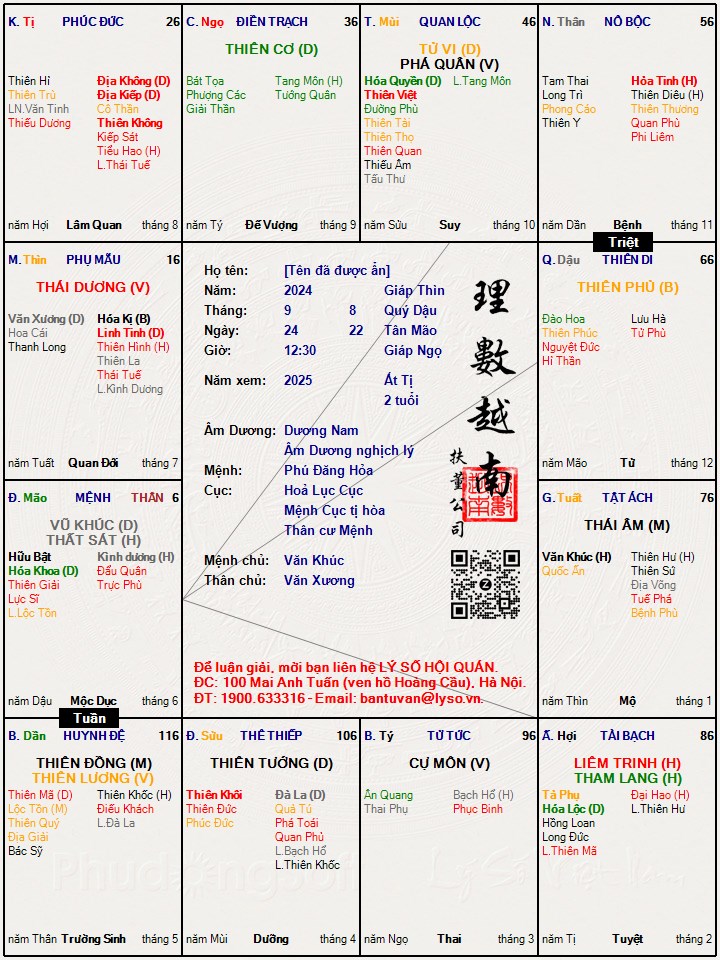 K. Tị PHÚC ĐỨC 26
Thiên Hỉ Địa Không (Đ)
Thiên Trù Địa Kiếp (Đ)
LN.Văn Tinh Cô Thần
Thiếu Dương Thiên Không
Kiếp Sát
Tiểu Hao (H)
L.Thái Tuế
năm Hợi Lâm Quan tháng 8
C. Ngọ ĐIỀN TRẠCH 36
THIÊN CƠ (Đ)
Bát Tọa Tang Môn (H)
Phượng Các Tướng Quân
Giải Thần
năm Tý Đế Vượng tháng 9
T. Mùi QUAN LỘC 46
TỬ VI (Đ)
PHÁ QUÂN (V)
Hóa Quyền (Đ) L.Tang Môn
Thiên Việt
Đường Phù
Thiên Tài
Thiên Thọ
Thiên Quan
Thiếu Âm
Tấu Thư
năm Sửu Suy tháng 10
N. Thân NÔ BỘC 56
Tam Thai Hỏa Tinh (H)
Long Trì Thiên Diêu (H)
Phong Cáo Thiên Thương
Thiên Y Quan Phù
Phi Liêm
năm Dần Bệnh tháng 11
Triệt
M. Thìn PHỤ MẪU 16
THÁI DƯƠNG (V)
Văn Xương (Đ) Hóa Kị (B)
Hoa Cái Linh Tinh (Đ)
Thanh Long Thiên Hình (H)
Thiên La
Thái Tuế
L.Kình Dương
năm Tuất Quan Đới tháng 7
Họ tên: [Tên đã được ẩn]
Năm: 2024 Giáp Thìn
Tháng: 9 8 Quý Dậu
Ngày: 24 22 Tân Mão
Giờ: 12:30 Giáp Ngọ
Năm xem: 2025 Ất Tị
2 tuổi
Âm Dương: Dương Nam
Âm Dương nghịch lý
Mệnh: Phú Đăng Hỏa
Cục: Hoả Lục Cục
Mệnh Cục tị hòa
Thân cư Mệnh
Mệnh chủ: Văn Khúc
Thân chủ: Văn Xương
理數越南
扶董公司
Để luận giải, mời bạn liên hệ LÝ SỐ HỘI QUÁN.
ĐC: 100 Mai Anh Tuấn (ven hồ Hoàng Cầu), Hà Nội.
ĐT: 1900.633316 - Email: bantuvan@lyso.vn.
Q. Dậu THIÊN DI 66
THIÊN PHỦ (B)
Đào Hoa Lưu Hà
Thiên Phúc Tử Phù
Nguyệt Đức
Hỉ Thần
năm Mão Tử tháng 12
Đ. Mão MỆNH THÂN 6
VŨ KHÚC (Đ)
THẤT SÁT (H)
Hữu Bật Kình dương (H)
Hóa Khoa (Đ) Đẩu Quân
Thiên Giải Trực Phù
Lực Sĩ
L.Lộc Tồn
năm Dậu Mộc Dục tháng 6
G. Tuất TẬT ÁCH 76
THÁI ÂM (M)
Văn Khúc (H) Thiên Hư (H)
Quốc Ấn Thiên Sứ
Địa Võng
Tuế Phá
Bệnh Phù
năm Thìn Mộ tháng 1
Tuần
B. Dần HUYNH ĐỆ 116
THIÊN ĐỒNG (M)
THIÊN LƯƠNG (V)
Thiên Mã (Đ) Thiên Khốc (H)
Lộc Tồn (M) Điếu Khách
Thiên Quý L.Đà La
Địa Giải
Bác Sỹ
năm Thân Trường Sinh tháng 5
Đ. Sửu THÊ THIẾP 106
THIÊN TƯỚNG (Đ)
Thiên Khôi Đà La (Đ)
Thiên Đức Quả Tú
Phúc Đức Phá Toái
Quan Phủ
L.Bạch Hổ
L.Thiên Khốc
năm Mùi Dưỡng tháng 4
B. Tý TỬ TỨC 96
CỰ MÔN (V)
Ân Quang Bạch Hổ (H)
Thai Phụ Phục Binh
năm Ngọ Thai tháng 3
Ấ. Hợi TÀI BẠCH 86
LIÊM TRINH (H)
THAM LANG (H)
Tả Phụ Đại Hao (H)
Hóa Lộc (Đ) L.Thiên Hư
Hồng Loan
Long Đức
L.Thiên Mã
năm Tị Tuyệt tháng 2